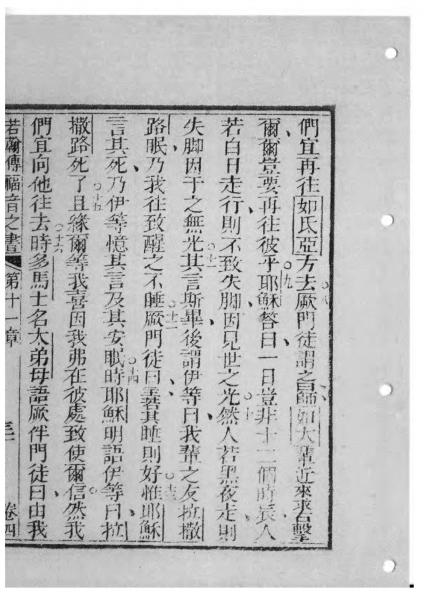 們宜再往如氐亞方去〇八厥門徒謂之曰師如大輩近來擊
爾爾豈要再往彼乎〇九耶穌答曰一日豈非十二個時辰人
若白日走行則不致失脚因見世之光〇十然人若黑夜走則
失脚因于之無光〇十一其言斯畢後謂伊等曰我輩之友拉撒
路眠乃我往致醒之不睡〇十二厥門徒曰其睡則好〇十三惟耶穌
言其死乃伊等憶其言及其安眠時〇十四耶穌明語伊等曰拉
撒路死了〇十五且緣爾等我喜因我弗在彼處致使爾信然我
們宜向他往去〇十六時多馬士名大弟母語厥伴門徒曰由我
若翰傳福音之書 第十一章 卷四